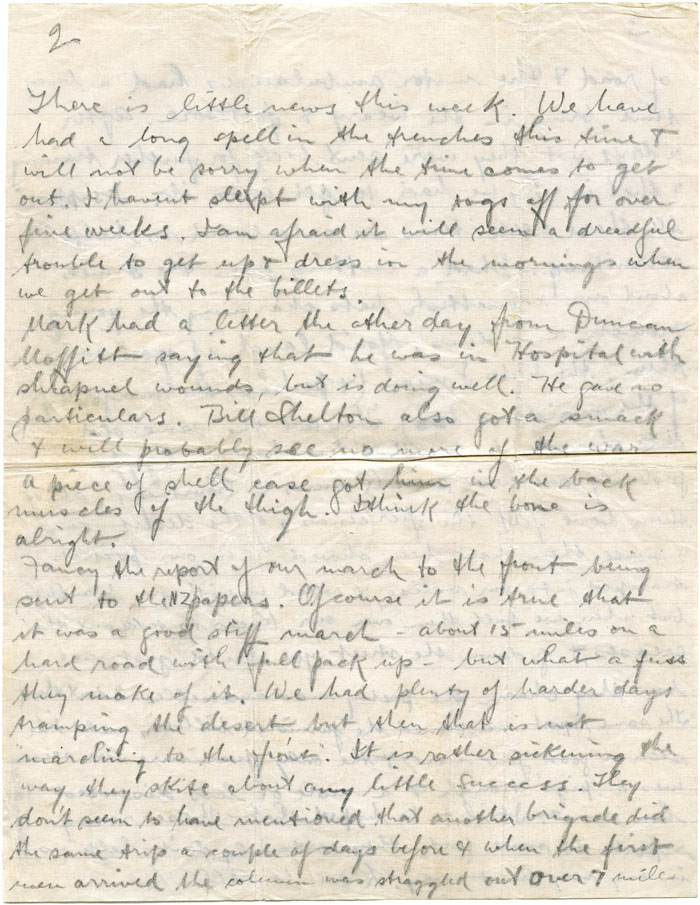 2
There is little news this week. We have
had a long spell in the trenches this time &
will not be sorry when the time comes to get
out. I havent slept with my togs off for over
five weeks. I am afraid it will seem a dreadful
trouble to get up & dress in the mornings when
we get out to the billets.
Mark had a letter the other day from Duncan
Moffitt saying that he was in Hospital with
shrapnel wounds, but is doing well. He gave no
particulars. Bill Shelton also got a smack
& will probably see no more of the war
A piece of shell case got him in the back
muscles of the thigh. I think the bone is
alright.
Fancy the report of our march to the front being
sent to the NZ papers. Of course it is true that
it was a good stiff march - about 15 miles on a
hard road with full pack up - but what a fuss
they make of it. We had plenty of harder days
tramping the desert but then that is not
"marching to the front". It is rather sickening the
way they skite about any little success. They
don't seem to have mentioned that another brigade did
the same trip a couple of days before & when the first
men arrived the column was straggled out over 7 miles